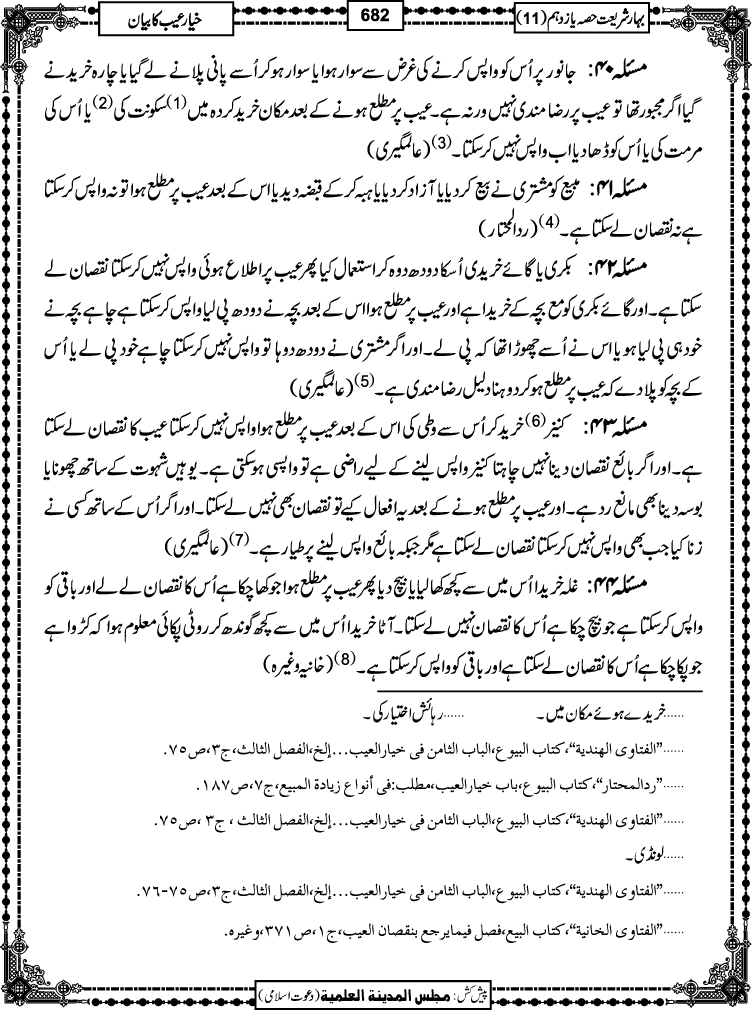 بہارِ شریعت حصہ یازدہم (11)
682
خیار عیب کا بیان
مسئلہ ۴۰: جانور پر اُس کو واپس کرنے کی غرض سے سوار ہوا یا سوار ہو کر اُسے پانی پلانے لے گیا یا چارہ خریدنے
گیا اگر مجبور تھا تو عیب پر رضا مندی نہیں ورنہ ہے۔ عیب پر مطلع ہونے کے بعد مکان خرید کردہ میں (1) سکونت کی (2) یا اُس کی
مرمت کی یا اُس کو ڈھا دیا اب واپس نہیں کر سکتا۔ (3) (عالمگیری)
مسئلہ ۴۱: مبیع کو مشتری نے بیع کر دیا یا آزاد کر دیا یا ہبہ کر کے قبضہ دیدیا اس کے بعد عیب پر مطلع ہوا تو نہ واپس کر سکتا
ہے نہ نقصان لے سکتا ہے۔ (4) (ردالمحتار)
مسئلہ ۴۲: بکری یا گائے خریدی اُسکا دودھ دوہ کر استعمال کیا پھر عیب پر اطلاع ہوئی واپس نہیں کر سکتا نقصان لے
سکتا ہے۔ اور گائے بکری کو مع بچہ کے خریدا ہے اور عیب پر مطلع ہوا اس کے بعد بچہ نے دودھ پی لیا واپس کر سکتا ہے چاہے بچہ نے
خود ہی پی لیا ہو یا اس نے اُسے چھوڑا تھا کہ پی لے۔ اور اگر مشتری نے دودھ دوہا تو واپس نہیں کر سکتا چاہے خود پی لے یا اُس
کے بچہ کو پلا دے کہ عیب پر مطلع ہو کر دوہنا دلیل رضا مندی ہے۔ (5) (عالمگیری)
مسئلہ ۴۳: کنیز (6) خرید کر اُس سے وطی کی اس کے بعد عیب پر مطلع ہوا واپس نہیں کر سکتا عیب کا نقصان لے سکتا
ہے۔ اور اگر بائع نقصان دینا نہیں چاہتا کنیز واپس لینے کے لیے راضی ہے تو واپسی ہو سکتی ہے۔ یوہیں شہوت کے ساتھ چھونا یا
بوسہ دینا بھی مانع رد ہے۔ اور عیب پر مطلع ہونے کے بعد یہ افعال کیے تو نقصان بھی نہیں لے سکتا۔ اور اگر اُس کے ساتھ کسی نے
زنا کیا جب بھی واپس نہیں کر سکتا نقصان لے سکتا ہے مگر جبکہ بائع واپس لینے پر طیار ہے۔ (7) (عالمگیری)
مسئلہ ۴۴: غلہ خریدا اُس میں سے کچھ کھا لیا یا بیچ دیا پھر عیب پر مطلع ہوا جو کھا چکا ہے اُس کا نقصان لے لے اور باقی کو
واپس کر سکتا ہے جو بیچ چکا ہے اُس کا نقصان نہیں لے سکتا۔ آٹا خریدا اُس میں سے کچھ گوندھ کر روٹی پکائی معلوم ہوا کہ کڑوا ہے
جو پکا چکا ہے اُس کا نقصان لے سکتا ہے اور باقی کو واپس کر سکتا ہے۔ (8) (خانیہ وغیرہ)
......خریدے ہوئے مکان میں۔ ......رہائش اختیار کی۔
......"الفتاوى الهندية"، كتاب البيوع، الباب الثامن فى خيار العيب...إلخ، الفصل الثالث، ج٣، ص٧٥.
......"ردالمحتار"، كتاب البيوع، باب خيار العيب، مطلب: فى أنواع زيادة المبيع، ج٧، ص١٨٧.
......"الفتاوى الهندية"، كتاب البيوع، الباب الثامن فى خيار العيب...إلخ، الفصل الثالث، ج٣، ص٧٥.
......لونڈی۔
......"الفتاوى الهندية"، كتاب البيوع، الباب الثامن فى خيار العيب...إلخ، الفصل الثالث، ج٣، ص٧٥-٧٦.
......"الفتاوى الخانية"، كتاب البيع، فصل فيما يرجع بنقصان العيب، ج١، ص٣٧١، وغيره.
پیش کش: مجلس المدینة العلمیة (دعوت اسلامی)